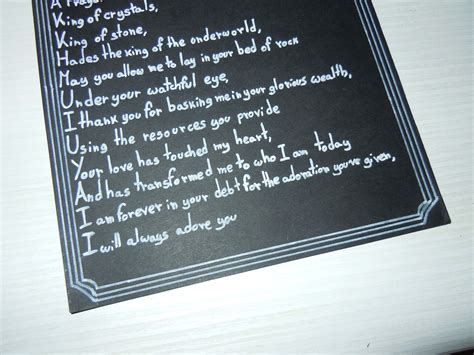 King of crystals,
King of stone,
Hades the king of the underworld,
May you allow me to lay in your bed of rock
Under your watchful eye,
I thank you for basking me in your glorious wealth,
Using the resources you provide
Your love has touched my heart,
And has transformed me to who I am today
I am forever in your debt for the adoration you've given,
I will always adore you